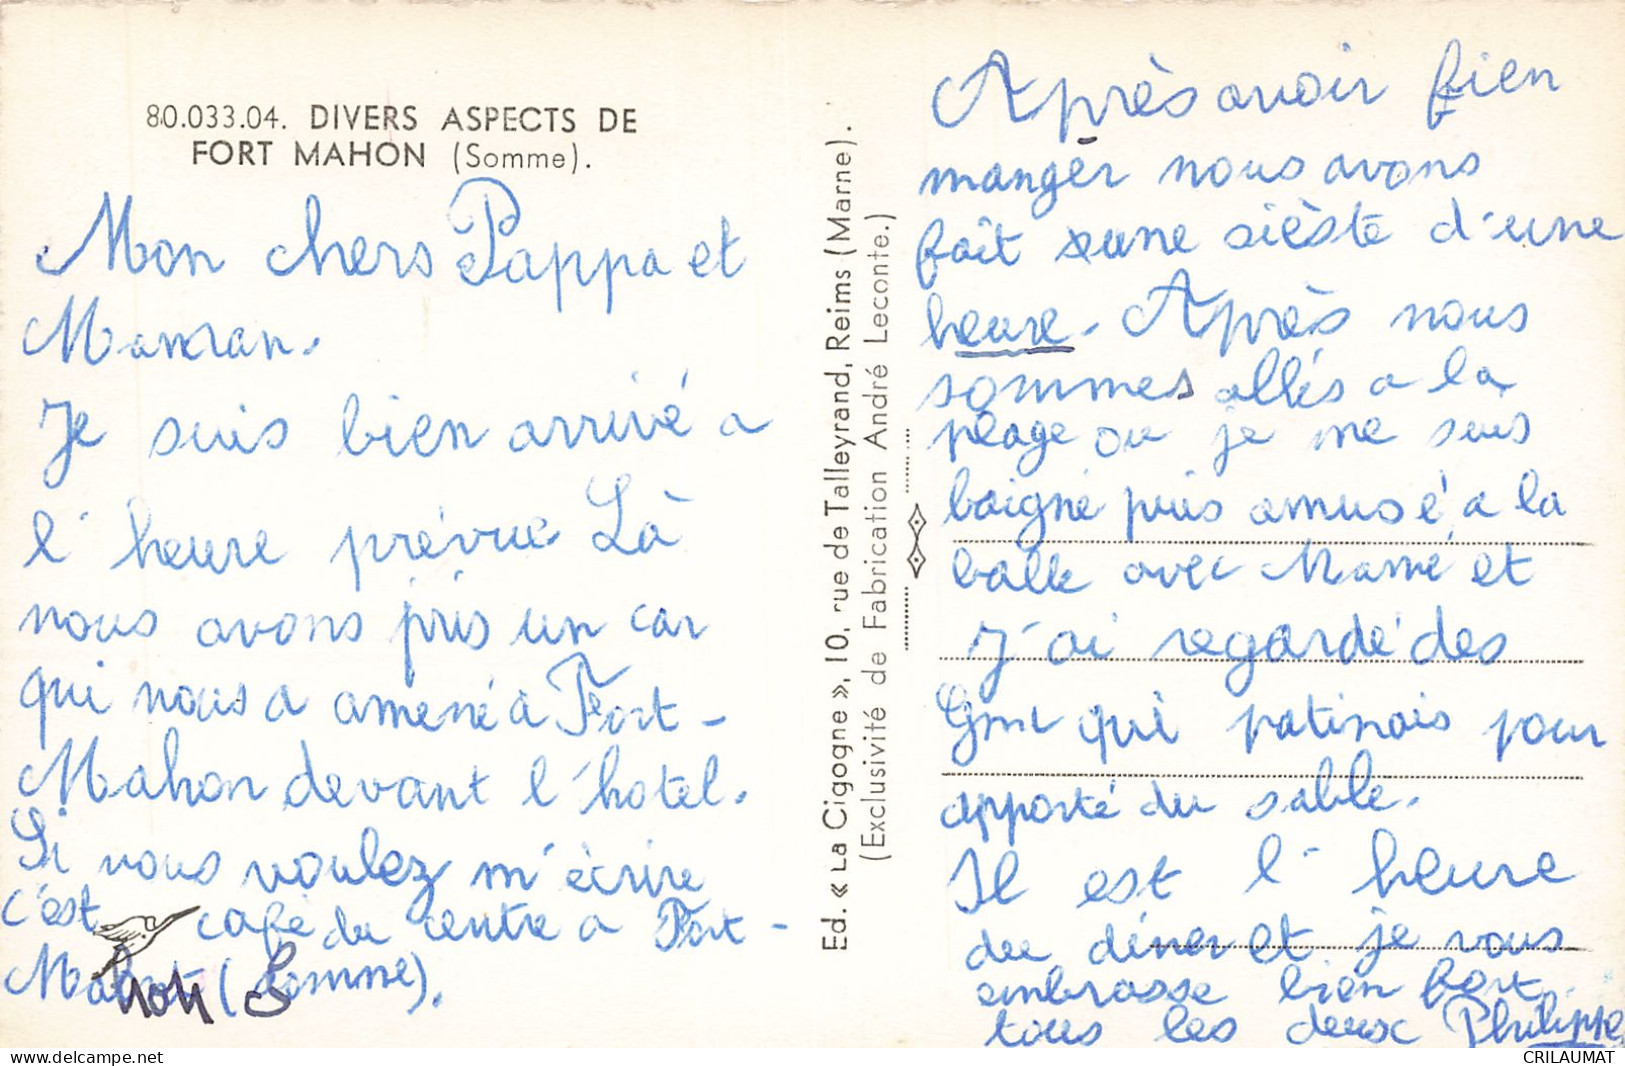 80.033.04. DIVERS ASPECTS DE
FORT MAHON (Somme).
Mon chers Pappa et
Maman.
Je suis bien arrivé a
l'heure prévue Là
nous avons pris un car
qui nous a amené à Fort-
Mahon devant l'hotel.
Si vous voulez m'écrire
c'est café du centre a Fort-
Mahon (Somme).
Ed. « La Cigogne », 10, rue de Talleyrand, Reims (Marne).
(Exclusivité de Fabrication André Leconte.)
Après avoir bien
mangér nous avons
fait une sièste d'une
heure. Après nous
sommes allés a la
plage ou je me suis
baigné puis amusé a la
balle avec Mamé et
J'ai regardé des
qui patinais pour
apporté du sable.
Il est l'heure
du diner et je vous
embrasse bien fort
tous les deux Philippe
CRILAUMAT